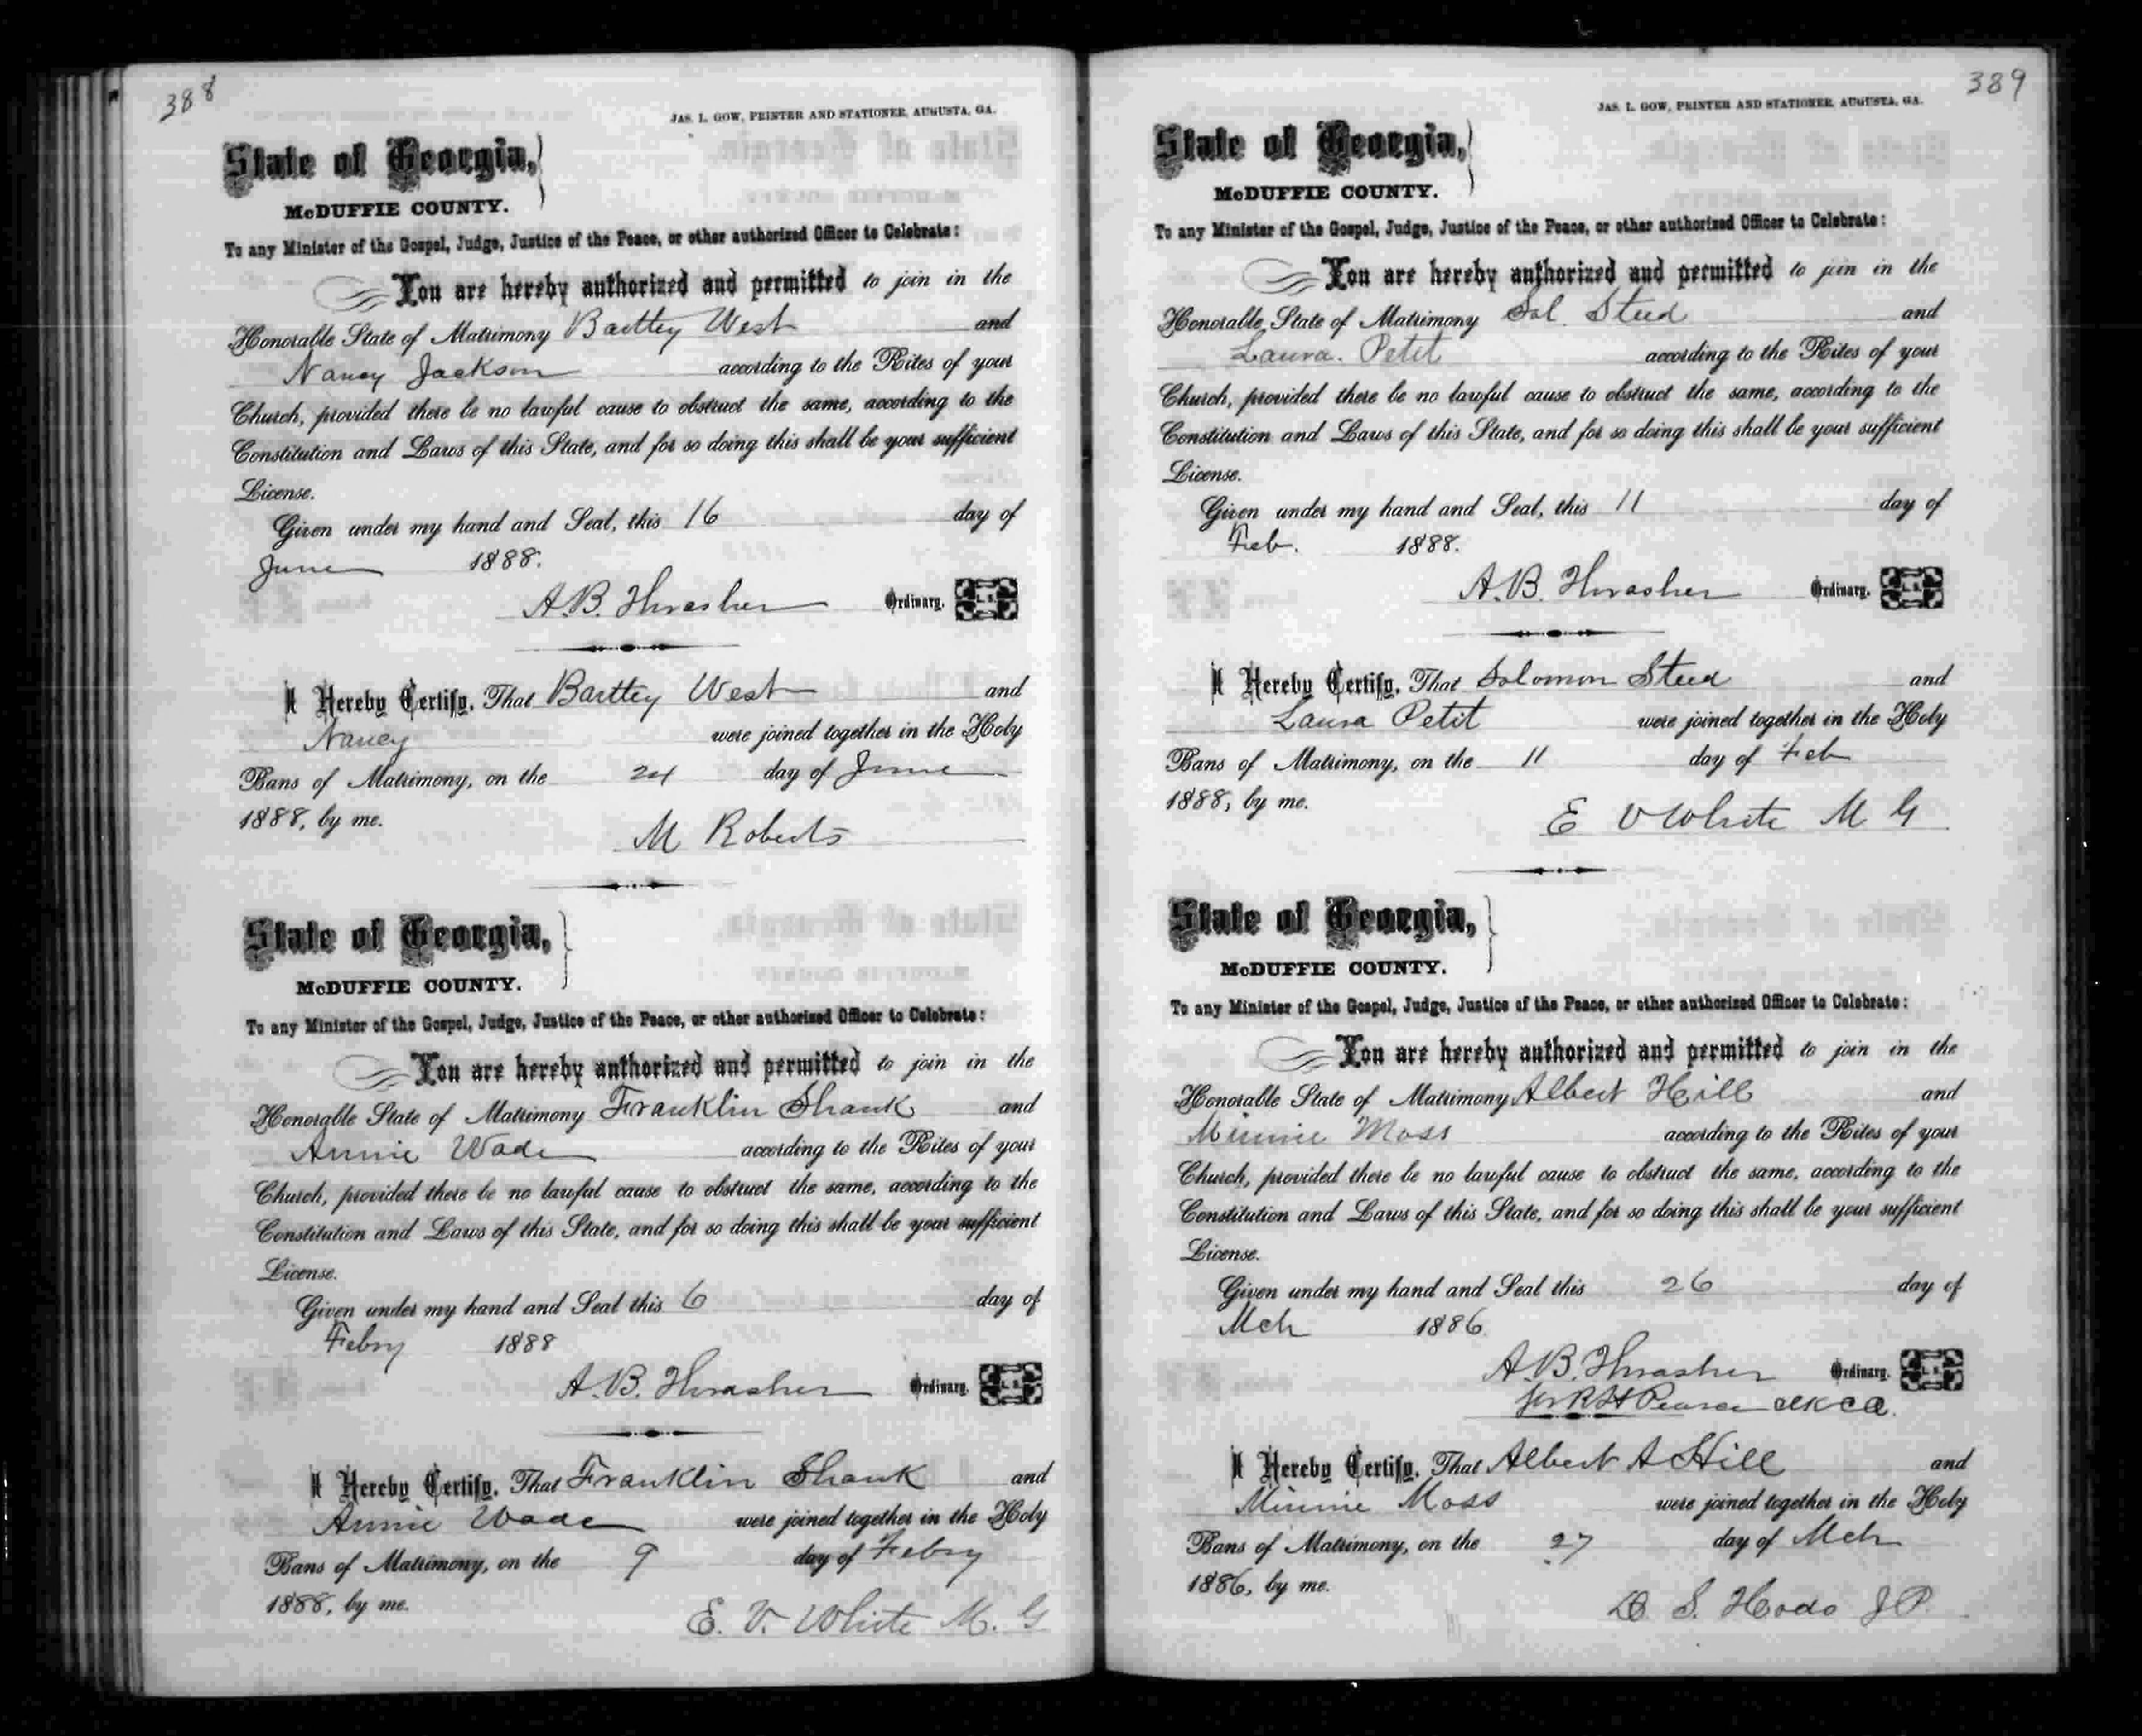 388
JAS. L. GOW, PRINTER AND STATIONER, AUGUSTA, GA.
State of Georgia,
McDUFFIE COUNTY.
To any Minister of the Gospel, Judge, Justice of the Peace, or other authorized Officer to Celebrate:
You are hereby authorized and permitted to join in the
Honorable State of Matrimony Bartley West and
Nancy Jackson according to the Rites of your
Church, provided there be no lawful cause to obstruct the same, according to the
Constitution and Laws of this State, and for so doing this shall be your sufficient
License.
Given under my hand and Seal, this 16 day of
June 1888.
A.B. Thrasher Ordinary. L.S.
I Hereby Certify, That Bartley West and
Nancy were joined together in the Holy
Bans of Matrimony, on the 24 day of June
1888, by me.
M Roberts
State of Georgia,
McDUFFIE COUNTY.
To any Minister of the Gospel, Judge, Justice of the Peace, or other authorized Officer to Celebrate:
You are hereby authorized and permitted to join in the
Honorable State of Matrimony Franklin Shank and
Annie Wade according to the Rites of your
Church, provided there be no lawful cause to obstruct the same, according to the
Constitution and Laws of this State, and for so doing this shall be your sufficient
License.
Given under my hand and Seal this 6 day of
Febry 1888
A.B. Thrasher Ordinary. L.S.
I Hereby Certify, That Franklin Shank and
Annie Wade were joined together in the Holy
Bans of Matrimony, on the 9 day of Febry
1888, by me.
E. V. White M. G
389
JAS. L. GOW, PRINTER AND STATIONER, AUGUSTA, GA.
State of Georgia,
McDUFFIE COUNTY.
To any Minister of the Gospel, Judge, Justice of the Peace, or other authorized Officer to Celebrate:
You are hereby authorized and permitted to join in the
Honorable State of Matrimony Sol. Steed and
Laura. Petit according to the Rites of your
Church, provided there be no lawful cause to obstruct the same, according to the
Constitution and Laws of this State, and for so doing this shall be your sufficient
License.
Given under my hand and Seal, this 11 day of
Feb. 1888.
A.B. Thrasher Ordinary. L.S.
I Hereby Certify, That Solomon Steed and
Laura Petit were joined together in the Holy
Bans of Matrimony, on the 11 day of Feb
1888, by me.
E V White M G
State of Georgia,
McDUFFIE COUNTY.
To any Minister of the Gospel, Judge, Justice of the Peace, or other authorized Officer to Celebrate:
You are hereby authorized and permitted to join in the
Honorable State of Matrimony Albert Hill and
Minnie Moss according to the Rites of your
Church, provided there be no lawful cause to obstruct the same, according to the
Constitution and Laws of this State, and for so doing this shall be your sufficient
License.
Given under my hand and Seal this 26 day of
Mch 1886
A.B. Thrasher Ordinary. L.S.
per R H Pearce clk
I Hereby Certify, That Albert A Hill and
Minnie Moss were joined together in the Holy
Bans of Matrimony, on the 27 day of Mch
1886, by me.
S. Hodo J P.